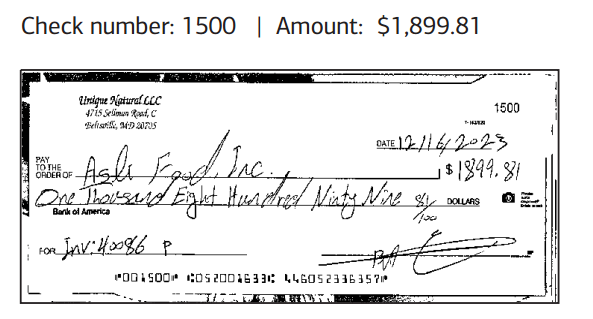 Check number: 1500 | Amount: $1,899.81
Unique Natural LLC
4715 Sellman Road, C
Beltsville, MD 20705
1500
DATE 12/16/2023
PAY TO THE ORDER OF Asli Food, Inc. $1899.81
One Thousand Eight Hundred Ninty Nine 81/100 DOLLARS
Bank of America
FOR Inv: 40086 P
⑈001500⑈ ⑆052001633⑆ 446052336357⑈